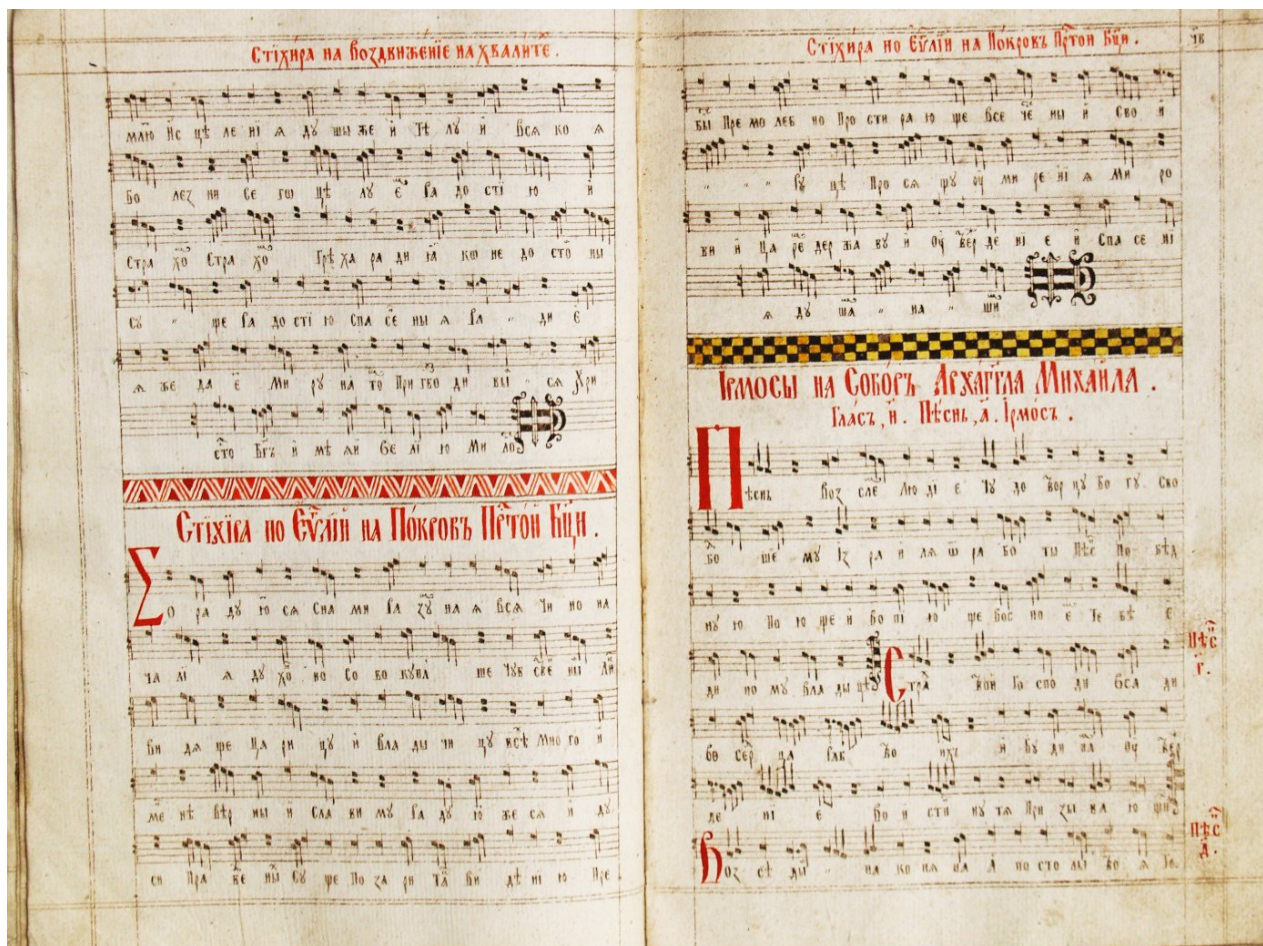 Стїхи́ра на Воздвиже́нїе на хвали́те .
млю̀ и҆с цѣ ле нї ѧ ду шы же и҆ тѣ лу и҆ всѧ ко ѧ
бо лез ни се гѡ цѣ лу є҆ ра до стї ю и҆
стра хо стра хо грѣ ха ра ди ꙗ҆ кѡ не до сто ны
су ще ра до стї ю спа се ны ѧ ра ди є
ѧ же да є ми ру на то при гво ди вы сѧ хри
сто бг҃ъ и҆ мѣ ѧй ве лї ю ми ло
Стїхїра по Єѵ҃лїи на По́кровъ Пр҃то́й Бц҃и .
Со ра ду ю сѧ сна ми ра зу на ѧ всѧ чи но на
ча лї ѧ ду хо но со во купи ше чув све ны ли
ви дѧ ще ца ри цу и҆ вла ды чи цу всѣ мно го и
ме нѣ вѣр ны и҆ сла ви му ра ду ю же сѧ и҆ ду
си пра ве ны су ще по за ри та ви дѣ нї ю пре
Стїхи́ра по Єѵ҃лїи на По́кровъ Пр҃то́й Бц҃и .
бы пре мо леб но про сти ра ю ще все че ны и҆ сво и
ру цѣ про сѧ щу оу҆ ми ре нї ѧ ми ро
ви и҆ ца ре дер жа ву и҆ оу҆ вер де нї є и҆ спа се нї
ѧ ду ша на ши
І҆рмосы на Собо́ръ Арха́гг҃ла Михаи́ла .
Гла́съ, и҃ . Пѣ́снь, а҃ . І҆рмо́съ .
Пѣснь воз сле лю дї е чу до вор цу бо гу сво
бо ше му і҆з ра и҆ лѧ ѿ ра бо ты пѣс по бѣд
ну ю по ю ще и҆ во пї ю ще вос по є те бѣ є
ди но му вла ды цѣ Стра вои го спо ди вса ди
Пѣс г҃ .
во сер ца раб во ихъ и҆ бу ди на оу҆ вер
де нї є во и҆ сти ну тѧ при зы ва ю щи
Воз сѣ ды на ко нѧ на а҆ по сто лы во ѧ го
Пѣс д҃ .